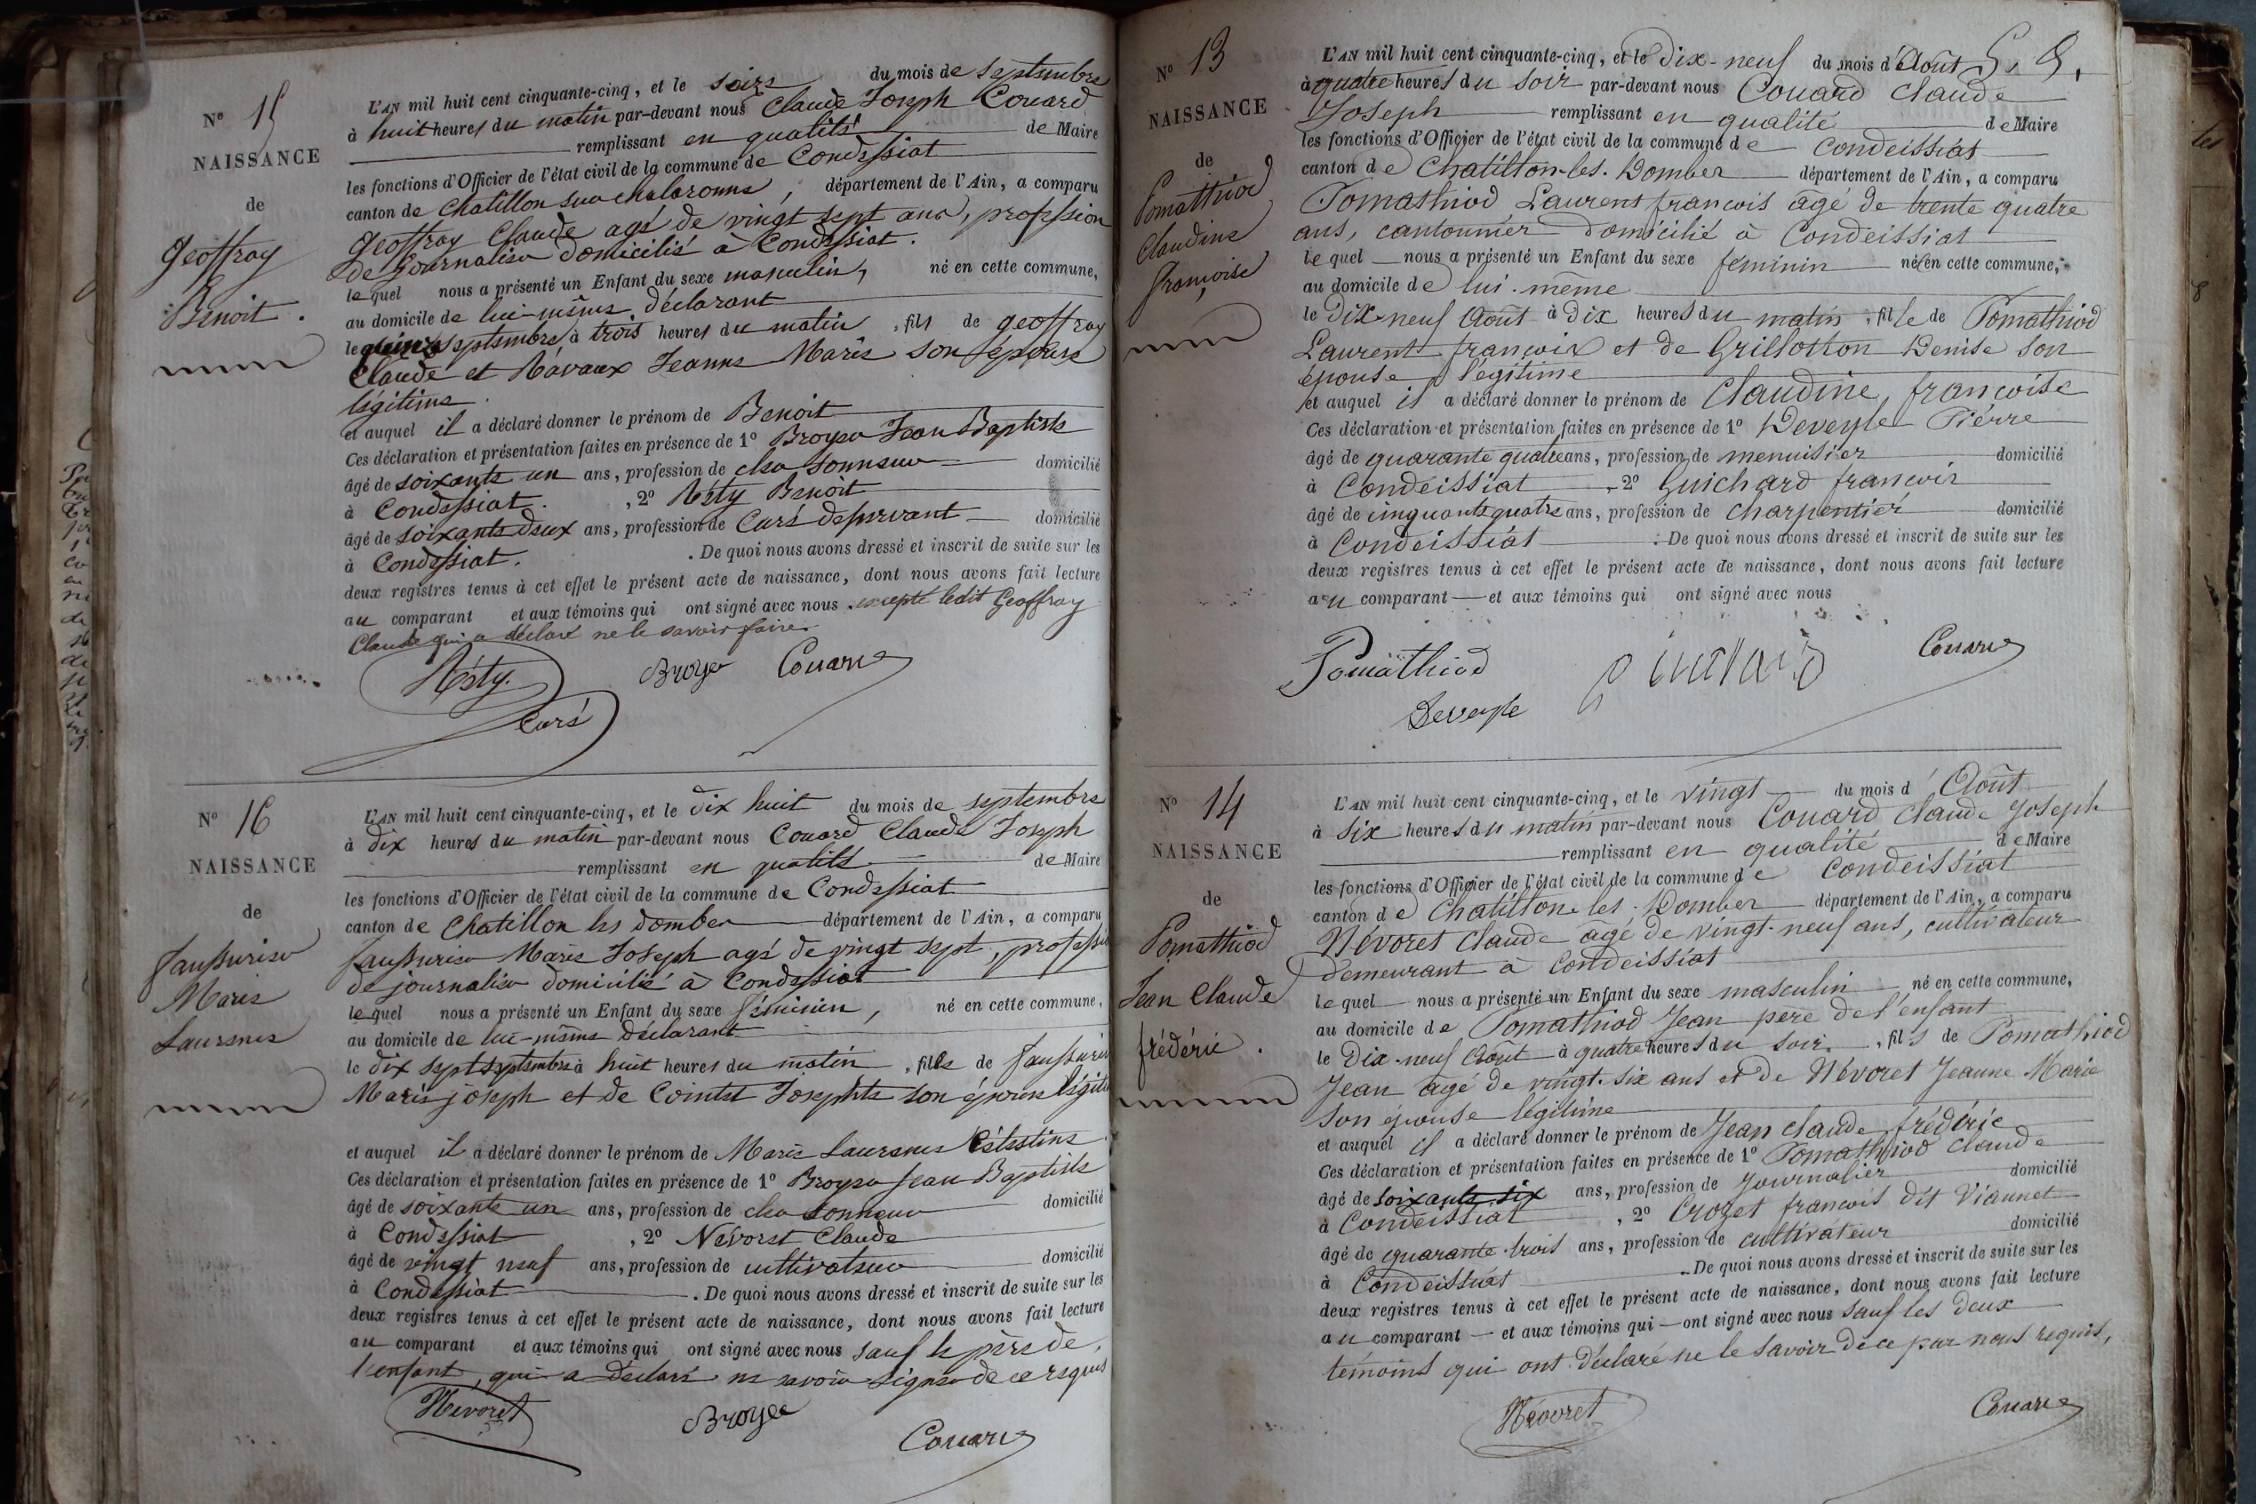 Nº 15
NAISSANCE
de
Geoffray
Benoit.
L'AN mil huit cent cinquante-cinq, et le du mois de septembre
à huit heures du matin par-devant nous Claude Joseph Couard
remplissant en qualité de Maire
les fonctions d'Officier de l'état civil de la commune de Condeissiat
canton de Chatillon sur chalaronne, département de l'Ain, a comparu
Geoffray Claude agé de vingt sept ans, profession
de journalier domicilié à Condeissiat.
lequel nous a présenté un Enfant du sexe masculin, né en cette commune,
au domicile de lui-même déclarant
le quinze septembre à trois heures du matin, fils de geoffray
Claude et Ravaux Jeanne Marie son épouse
légitime.
et auquel il a déclaré donner le prénom de Benoit
Ces déclaration et présentation faites en présence de 1º Broyer Jean Baptiste
âgé de soixante un ans, profession de domicilié
à Condeissiat. , 2º Réty Benoit
âgé de soixante deux ans, profession de Curé desservant domicilié
à Condeissiat. . De quoi nous avons dressé et inscrit de suite sur les
deux registres tenus à cet effet le présent acte de naissance, dont nous avons fait lecture
au comparant et aux témoins qui ont signé avec nous excepté ledit Geoffray
Claude qui a déclaré ne le savoir faire.
Réty Broyer Couard
Curé
Nº 16
NAISSANCE
de
Faussurier
Marie
Laurence
L'AN mil huit cent cinquante-cinq, et le dix huit du mois de septembre
à dix heures du matin par-devant nous Couard Claude Joseph
remplissant en qualité de Maire
les fonctions d'Officier de l'état civil de la commune de Condeissiat
canton de Chatillon les dombes département de l'Ain, a comparu
faussurier Marie Joseph agé de vingt sept, profession
de journalier domicilié à Condeissiat
lequel nous a présenté un Enfant du sexe féminin, né en cette commune,
au domicile de lui-même déclarant
le dix sept septembre à huit heures du matin, fille de
Marie joseph et de Cointet Josephte son épouse légitime
et auquel il a déclaré donner le prénom de Marie Laurence Célestine
Ces déclaration et présentation faites en présence de 1º Broyer Jean Baptiste
âgé de soixante un ans, profession de domicilié
à Condeissiat , 2º Névoret Claude
âgé de vingt neuf ans, profession de cultivateur domicilié
à Condeissiat . De quoi nous avons dressé et inscrit de suite sur les
deux registres tenus à cet effet le présent acte de naissance, dont nous avons fait lecture
au comparant et aux témoins qui ont signé avec nous sauf le père de
l'enfant, qui a déclaré ne savoir signer de ce requis
Névoret Broyer
Couard
Nº 13
NAISSANCE
de
Pomathiod
Claudine
françoise
L'AN mil huit cent cinquante-cinq, et le Dix-neuf du mois d'Août
à quatre heures du soir par-devant nous Couard Claude
Joseph remplissant en qualité de Maire
les fonctions d'Officier de l'état civil de la commune de Condeissiat
canton de Chatillon-les-Dombes département de l'Ain, a comparu
Pomathiod Laurent françois âgé de trente quatre
ans, cantonnier domicilié à Condeissiat
lequel nous a présenté un Enfant du sexe féminin née en cette commune,
au domicile de lui-même
le Dix-neuf Août à dix heures du matin, fille de Pomathiod
Laurent françois et de Grillotton Denise son
épouse légitime
et auquel il a déclaré donner le prénom de Claudine, françoise
Ces déclaration et présentation faites en présence de 1º Deveyle Piérre
âgé de quarante quatre ans, profession de menuisier domicilié
à Condeissiat , 2º Guichard françois
âgé de cinquante quatre ans, profession de charpentier domicilié
à Condeissiat . De quoi nous avons dressé et inscrit de suite sur les
deux registres tenus à cet effet le présent acte de naissance, dont nous avons fait lecture
au comparant et aux témoins qui ont signé avec nous
Pomathiod Couard
Deveyle
Nº 14
NAISSANCE
de
Pomathiod
Jean Claude
frédéric.
L'AN mil huit cent cinquante-cinq, et le vingt du mois d'Août
à six heures du matin par-devant nous Couard Claude Joseph
remplissant en qualité de Maire
les fonctions d'Officier de l'état civil de la commune de Condeissiat
canton de Chatillon-les-Dombes département de l'Ain, a comparu
Névoret Claude âgé de vingt-neuf ans, cultivateur
demeurant à Condeissiat
lequel nous a présenté un Enfant du sexe masculin né en cette commune,
au domicile de Pomathiod Jean père de l'enfant
le Dix-neuf Août à quatre heures du soir, fils de Pomathiod
Jean âgé de vingt-six ans et de Névoret Jeanne Marie
son épouse légitime
et auquel il a déclaré donner le prénom de Jean Claude frédéric
Ces déclaration et présentation faites en présence de 1º Pomathiod Claude
âgé de soixante six ans, profession de Journalier domicilié
à Condeissiat , 2º Crozet françois dit Viannet
âgé de quarante trois ans, profession de cultivateur domicilié
à Condeissiat . De quoi nous avons dressé et inscrit de suite sur les
deux registres tenus à cet effet le présent acte de naissance, dont nous avons fait lecture
au comparant et aux témoins qui ont signé avec nous sauf les deux
témoins qui ont déclaré ne le savoir de ce par nous requis,
Névoret Couard